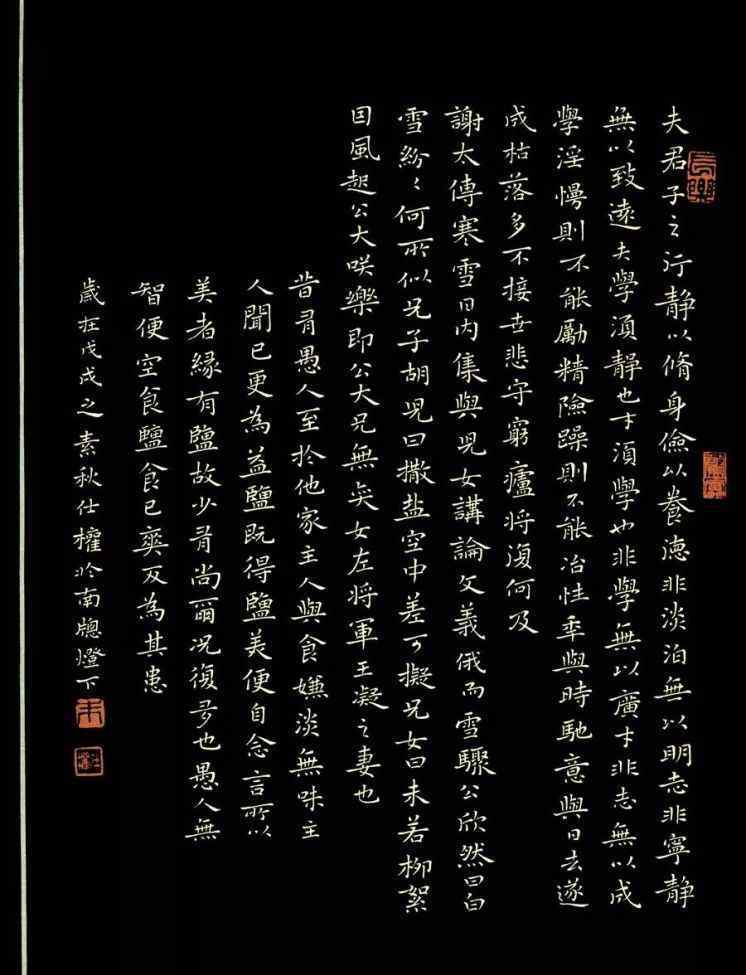 夫君子之行静以脩身儉以養德非淡泊無以明志非寧静
無以致遠夫學須静也才須學也非學無以廣才非志無以成
學淫慢則不能勵精險躁則不能冶性年與時馳意與日去遂
成枯落多不接世悲守窮廬将復何及
謝太傅寒雪日内集與兒女講論文義俄而雪驟公欣然曰白
雪紛々何所似兄子胡兒曰撒盐空中差可擬兄女曰未若柳絮
因風起公大咲樂即公大兄無奕女左将軍王凝之妻也
昔有愚人至於他家主人與食嫌淡無味主
人聞已更為益鹽既得鹽美便自念言所以
美者緣有鹽故少有尚爾况復多也愚人無
智便空食鹽食已爽反為其患
歲在戊戌之素秋仕權於南牕燈下
長樂